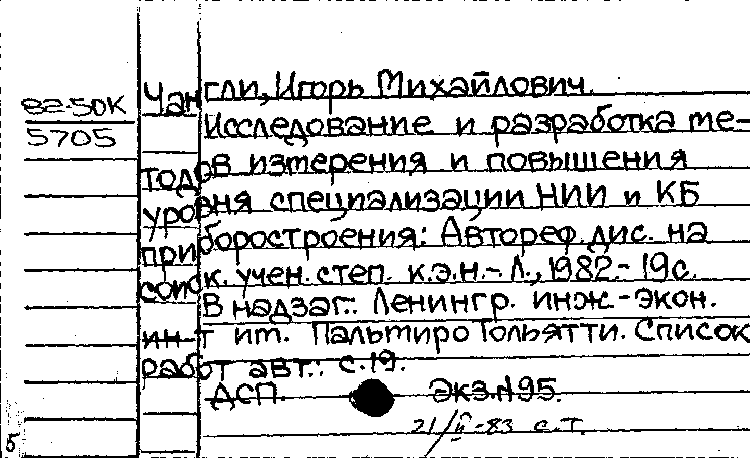 82-50К
5705
Чангли, Игорь Михайлович.
Исследование и разработка ме-
тодов измерения и повышения
уровня специализации НИИ и КБ
приборостроения: Автореф. дис. на
соиск. учен. степ. к.э.н. - Л., 1982. - 19с.
В надзаг.: Ленингр. инж.-экон.
ин-т им. Пальмиро Тольятти. Список
работ авт.: с.19.
ДСП. Экз.N95.
21/II-83 с.т.
5